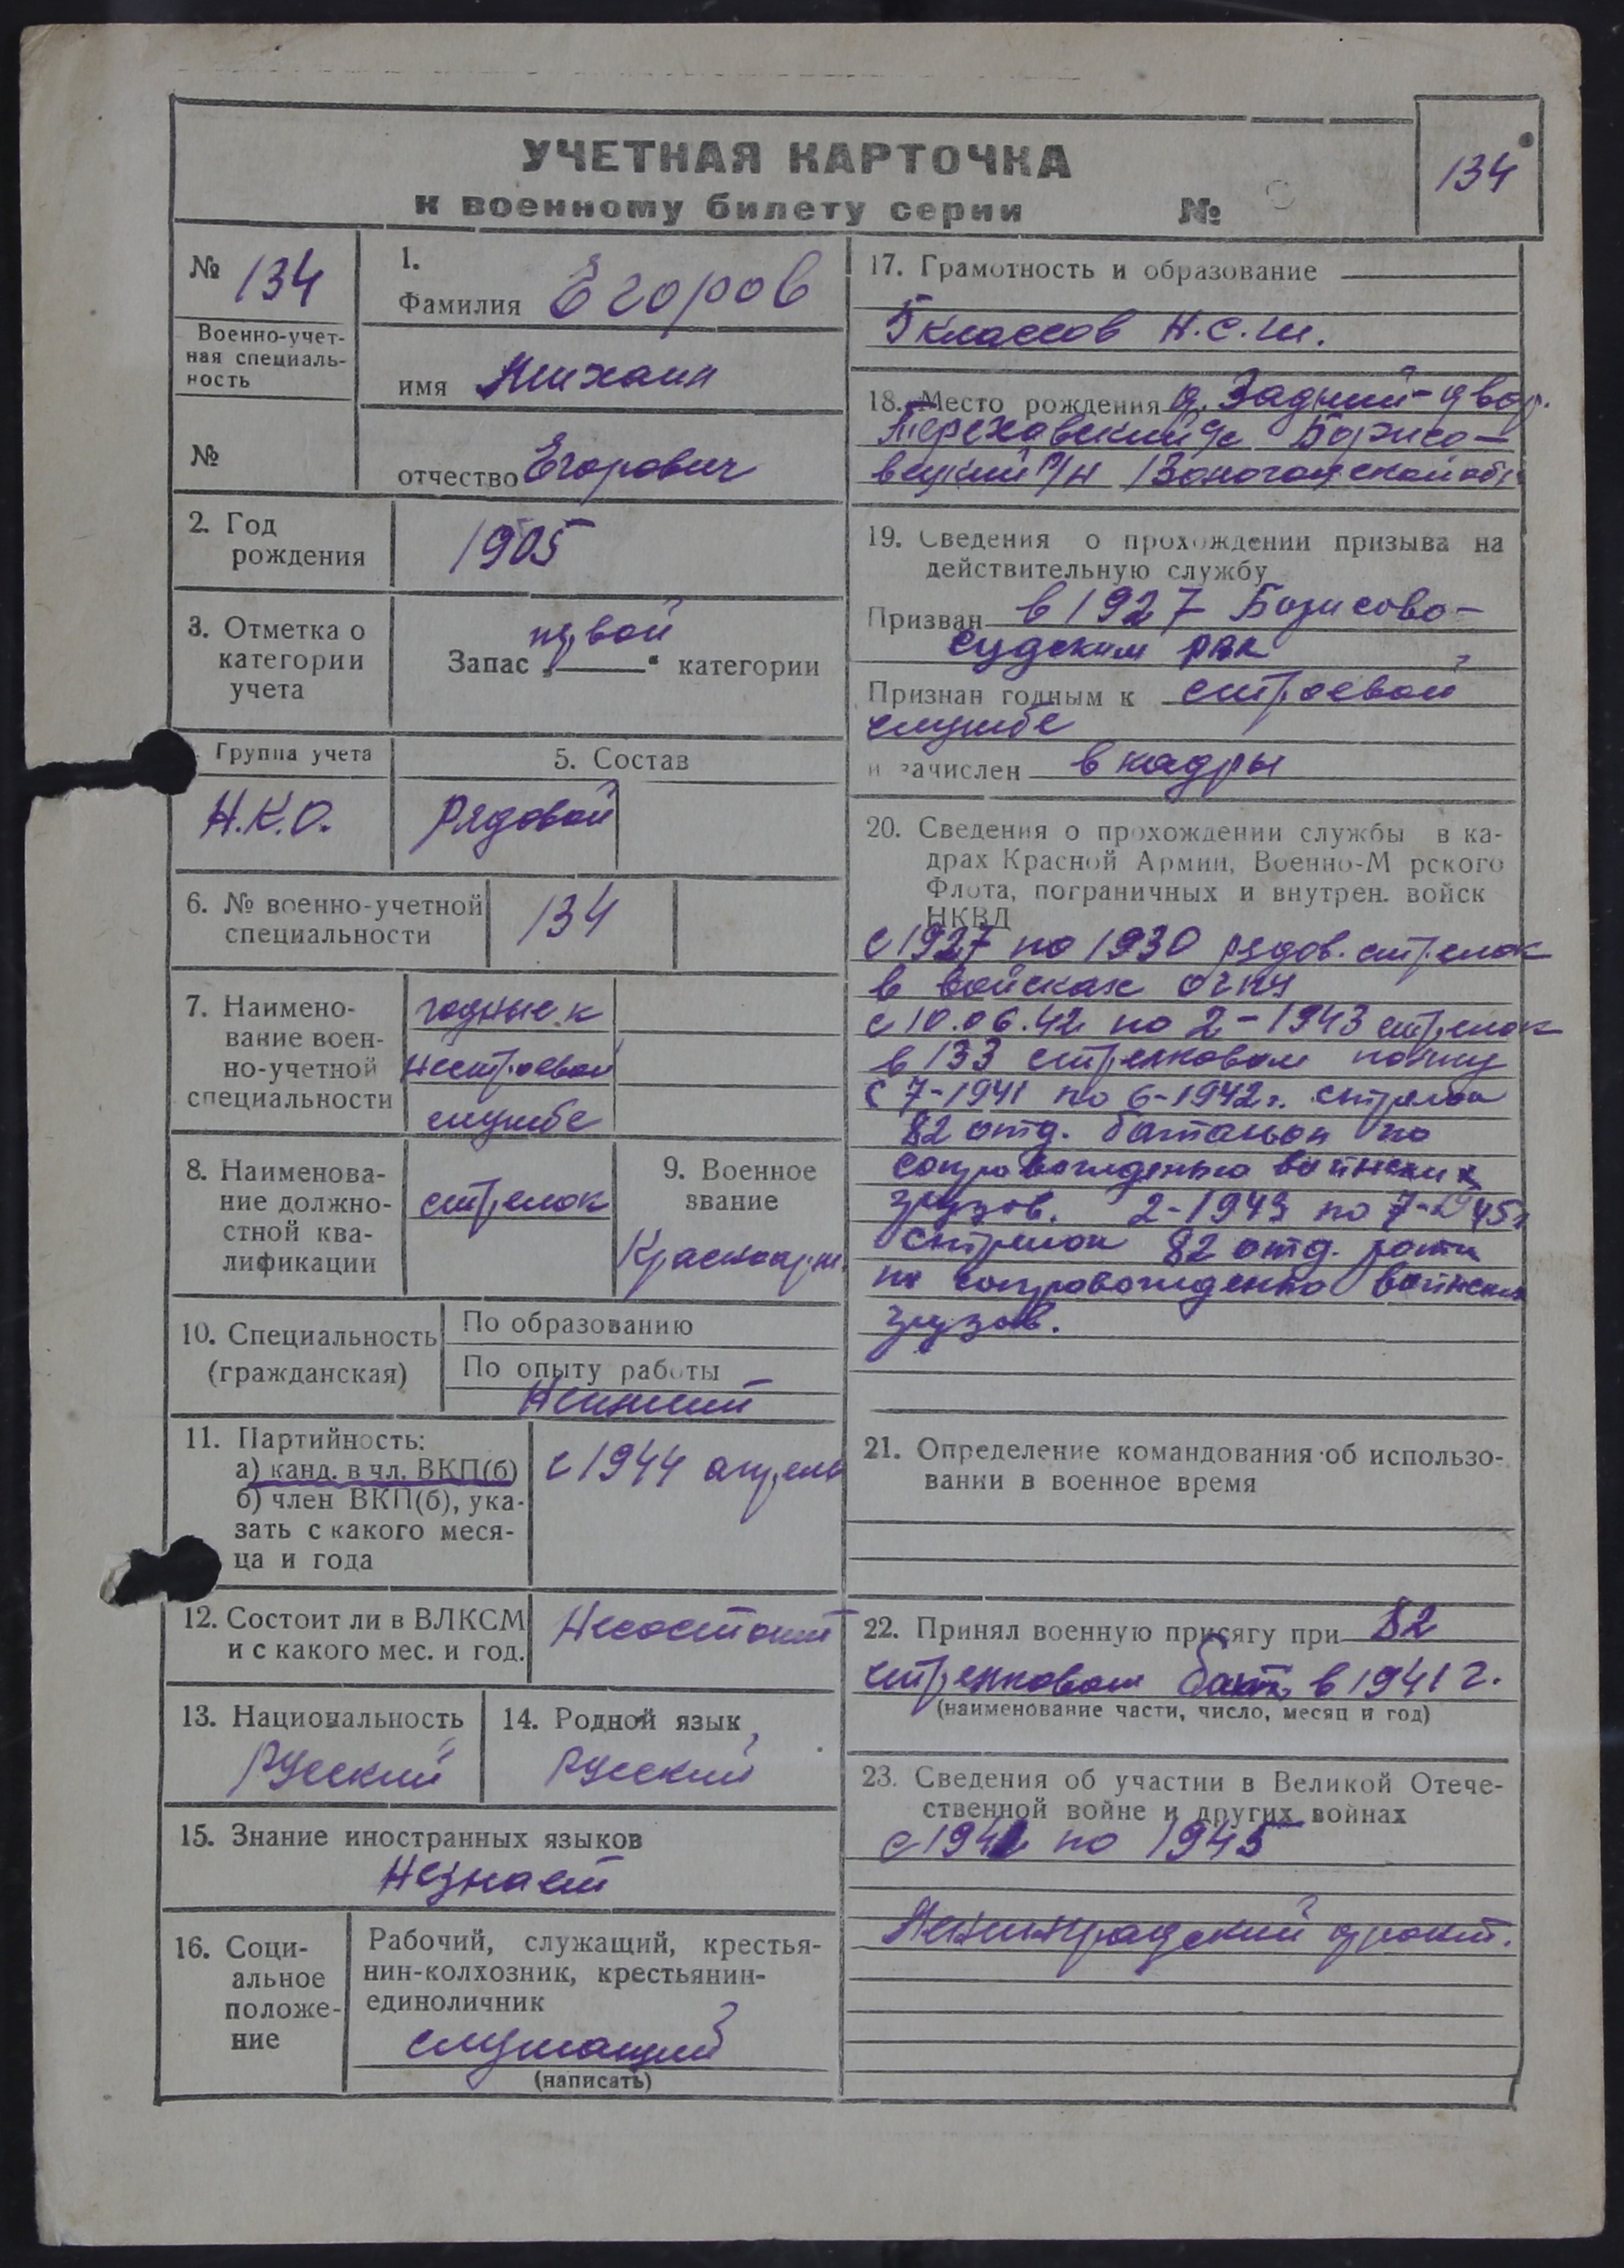 УЧЕТНАЯ КАРТОЧКА
к военному билету серии №
134
№ 134
Военно-учет-
ная специаль-
ность
№
1.
Фамилия Егоров
имя Михаил
отчество Егорович
2. Год
рождения
1905
3. Отметка о
категории
учета
первой
Запас „ “ категории
Группа учета
Н.К.О.
5. Состав
Рядовой
6. № военно-учетной
специальности
134
7. Наимено-
вание воен-
но-учетной
специальности
годные к
нестроевой
службе
8. Наименова-
ние должно-
стной ква-
лификации
стрелок
9. Военное
звание
Красноарм.
10. Специальность
(гражданская)
По образованию
По опыту работы
Неимеит
11. Партийность:
а) канд. в чл. ВКП(б)
б) член ВКП(б), ука-
зать с какого меся-
ца и года
с 1944 апрель
12. Состоит ли в ВЛКСМ
и с какого мес. и год.
Несостоит
13. Национальность
Русский
14. Родной язык
Русский
15. Знание иностранных языков
Незнает
16. Соци-
альное
положе-
ние
Рабочий, служащий, крестья-
нин-колхозник, крестьянин-
единоличник
служащий
(написать)
17. Грамотность и образование
5 классов Н.С.Ш.
18. Место рождения д. Задний-двор.
Борисо-
р/н Вологодской обл.
19. Сведения о прохождении призыва на
действительную службу
Призван в 1927 Борисово-
судским рвк
Признан годным к строевой
службе
и зачислен в кадры
20. Сведения о прохождении службы в ка-
драх Красной Армии, Военно-М рского
Флота, пограничных и внутрен. войск
НКВД
с 1927 по 1930 рядов. стрелок
в войсках
с 10.06.42 по 2-1943 стрелок
в 133 стрелковом полку
с 7-1941 по 6-1942г. стрелок
82 отд. батальон по
сопровожденью воинских
грузов. 2-1943 по 7-1945г
стрелок 82 отд. роты
по сопровожденю воинских
грузов.
21. Определение командования об использо-
вании в военное время
22. Принял военную присягу при 82
стрелковом бат. в 1941 г.
(наименование части, число, месяц и год)
23. Сведения об участии в Великой Отече-
ственной войне и других войнах
с 1941 по 1945
Ленинградский фронт.